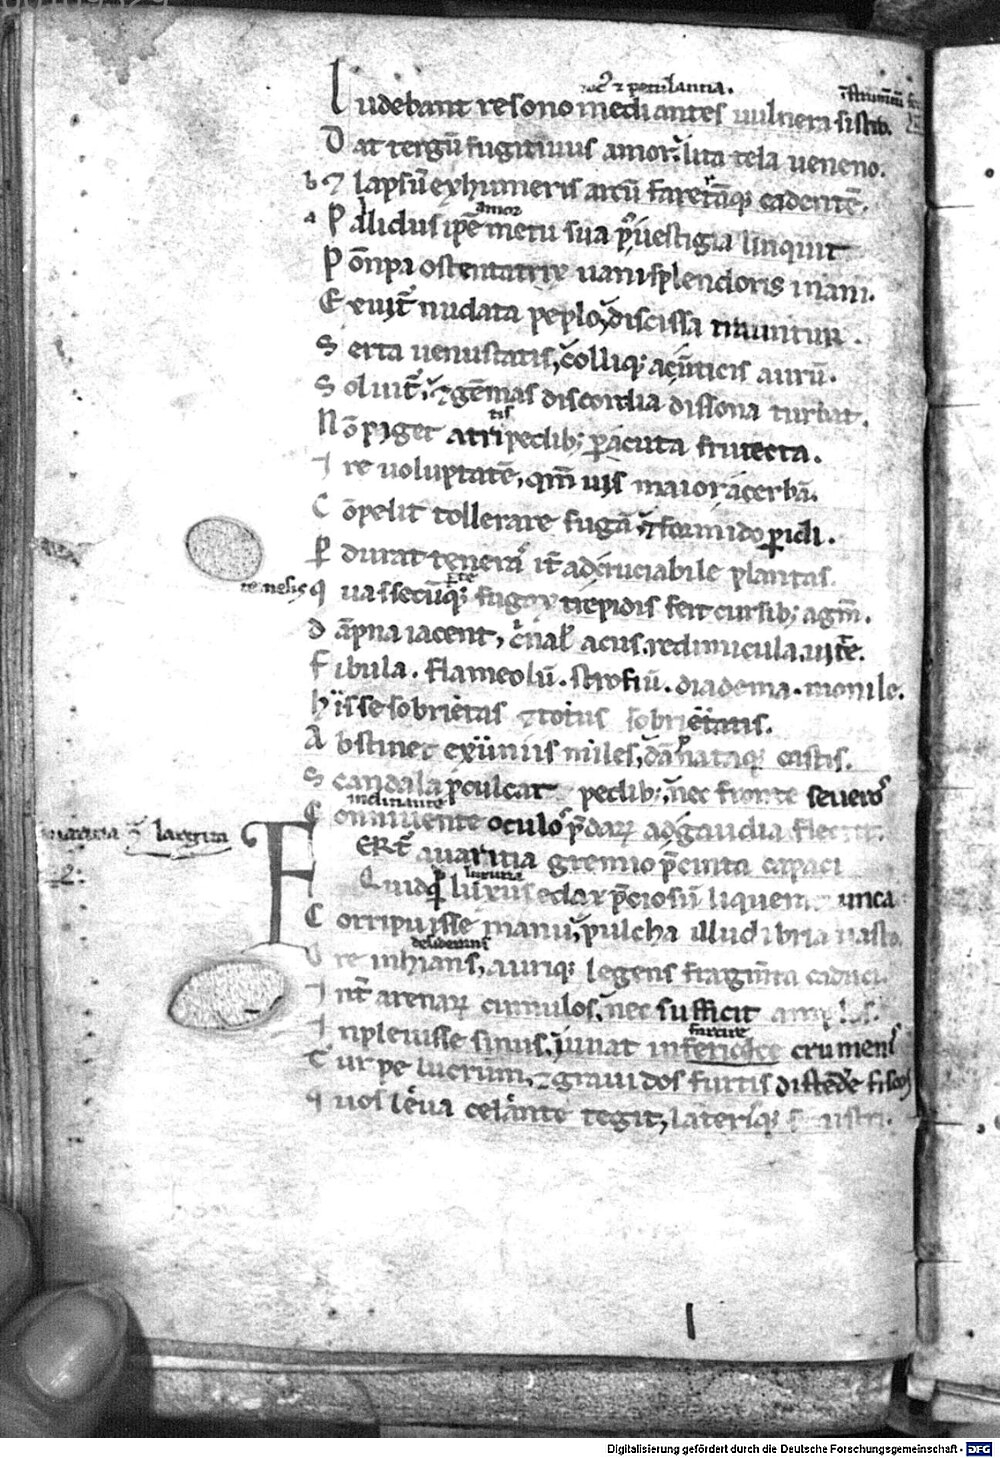 ioc᷒ ⁊ petulantia.
Ludebant resono mediantes uulnera sistro.
Dat tergū fugitiuus amor. lita tela ueneno.
b ⁊ lapsū ex humeris arcū faretrāq; cadentē.
amor
a Pallidus ipse metu sua p᷒ uestigia linquit
Pōnpa ostentatrix uani splendoris inani.
Exuit᷑ nudata peplo, discissa trauntur.
Serta uenustatis, colliq; ac u̅ticis aurū.
Soluit᷑, ⁊ gēmas discordia dissona turbat.
tis
Nō piget atri pedib; p acuta frutecta.
Ire uoluptatē, qm̄ uis maior acerbā.
Cōpelit tollerare fugā, ⁊ formido p̱icli.
P̱durat tenera it᷑ ad cruciabile plantas.
Quas secūq; fugax trepidis fert cursib; agm̄.
Dāpna iacent, c̓nal̓ acus. redimicula. uitte.
Fibula. flameolū. strofiū. diadema. monile.
Hiis se sobrietas ⁊ totus sobrietatis.
Abstinet exuuiis miles, dāpnataq; castis.
Scandala p̱culcat pedib;, nec fronte seueros
Conniuente oculos p̄daꝝ ad gaudia flectit.
auaricia larguta
Fert᷑ auaritia gremio p̄cincta capaci
luxuria
Quidq̱ luxus edax p̄ciosū liquerat unca
Corripuisse manu, pulcha illudibria uasto.
desiderans
Ore inhians, auriq; legens fragm̄ta caduci.
Int᷑ arenaꝝ cumulos. nec sufficit amplos.
farcire
Inpleuisse sinus. iuuat infercire crumenis
Turpe lucrum, ⁊ grauidos furtis distēdere fiscos
Quos leua celante tegit, laterisq; sinistri.
Digitalisierung gefördert durch die Deutsche Forschungsgemeinschaft - DFG